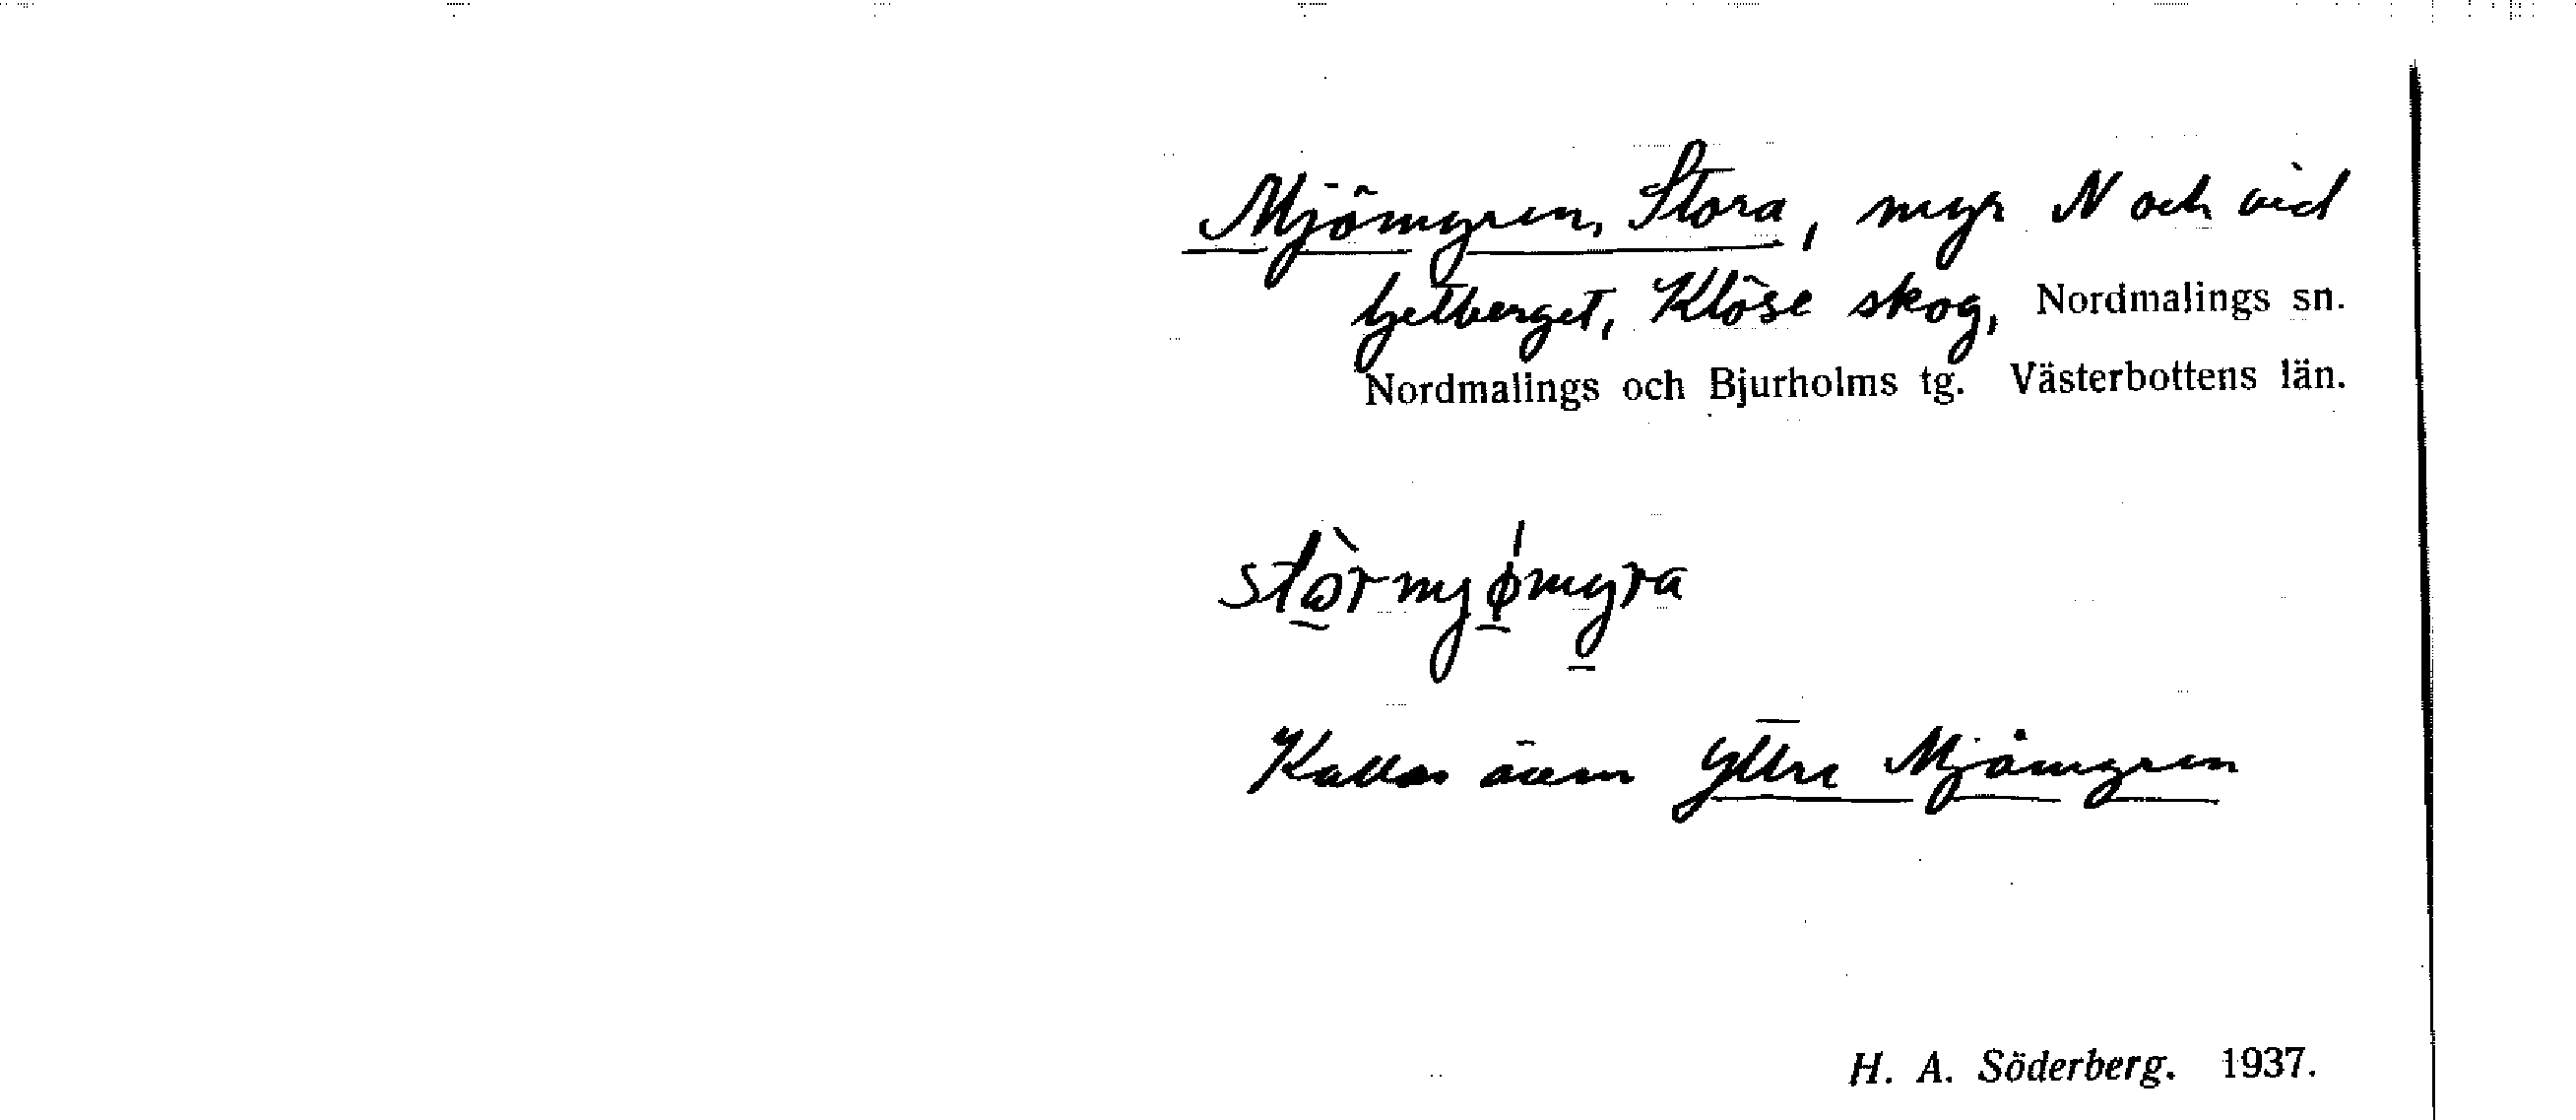 Mjömyren, Stora, myr N och vid
Getberget, Klöse skog, Nordmalings sn.
Nordmalings och Bjurholms tg. Västerbottens län.
stòrmyømyra
Kallas även Yttre Mjömyren
H. A. Söderberg. 1937.